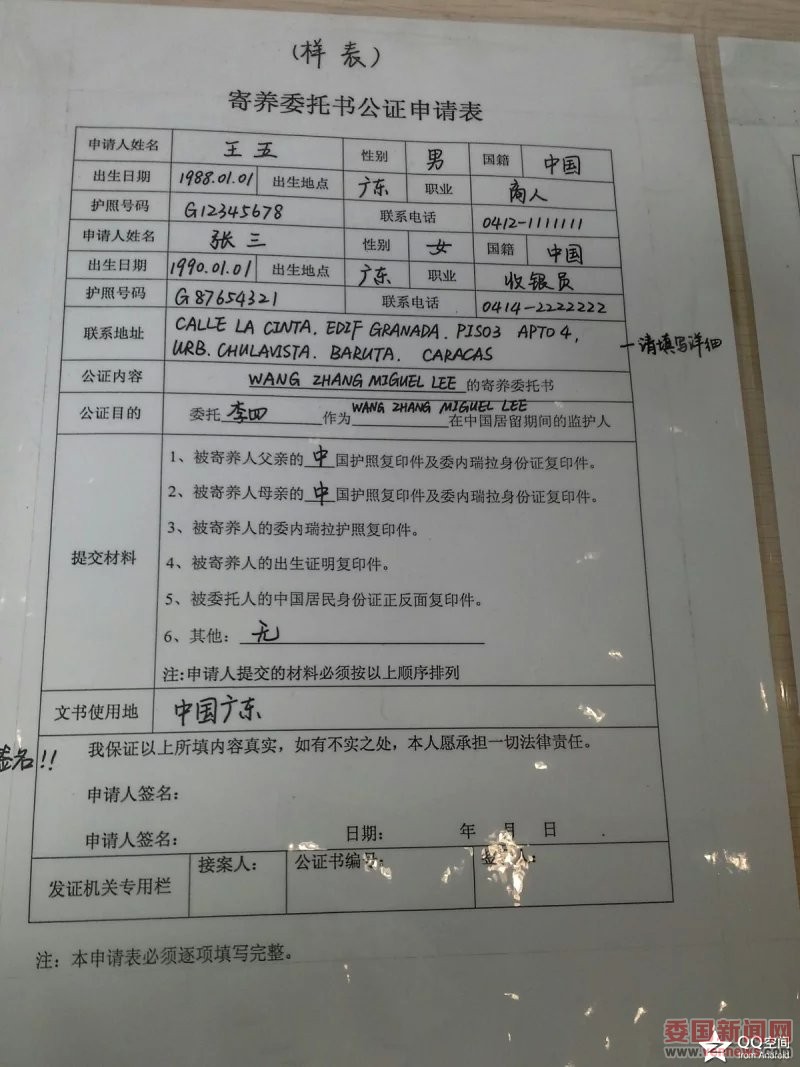 （样表）
寄养委托书公证申请表
申请人姓名 王五 性别 男 国籍 中国
出生日期 1988.01.01 出生地点 广东 职业 商人
护照号码 G12345678 联系电话 0412-1111111
申请人姓名 张三 性别 女 国籍 中国
出生日期 1990.01.01 出生地点 广东 职业 收银员
护照号码 G87654321 联系电话 0414-2222222
联系地址 CALLE LA CINTA. EDIF GRANADA. PISO3 APTO4,
URB. CHULAVISTA. BARUTA. CARACAS
—请填写详细
公证内容 WANG ZHANG MIGUEL LEE 的寄养委托书
公证目的 委托 李四 作为 WANG ZHANG MIGUEL LEE 在中国居留期间的监护人
提交材料
1、被寄养人父亲的 中 国护照复印件及委内瑞拉身份证复印件。
2、被寄养人母亲的 中 国护照复印件及委内瑞拉身份证复印件。
3、被寄养人的委内瑞拉护照复印件。
4、被寄养人的出生证明复印件。
5、被委托人的中国居民身份证正反面复印件。
6、其他：无
注:申请人提交的材料必须按以上顺序排列
文书使用地 中国广东
签名!!
我保证以上所填内容真实，如有不实之处，本人愿承担一切法律责任。
申请人签名：
申请人签名： 日期： 年 月 日
发证机关专用栏 接案人： 公证书编号： 人：
注：本申请表必须逐项填写完整。
委国新闻网
QQ空间
from Android